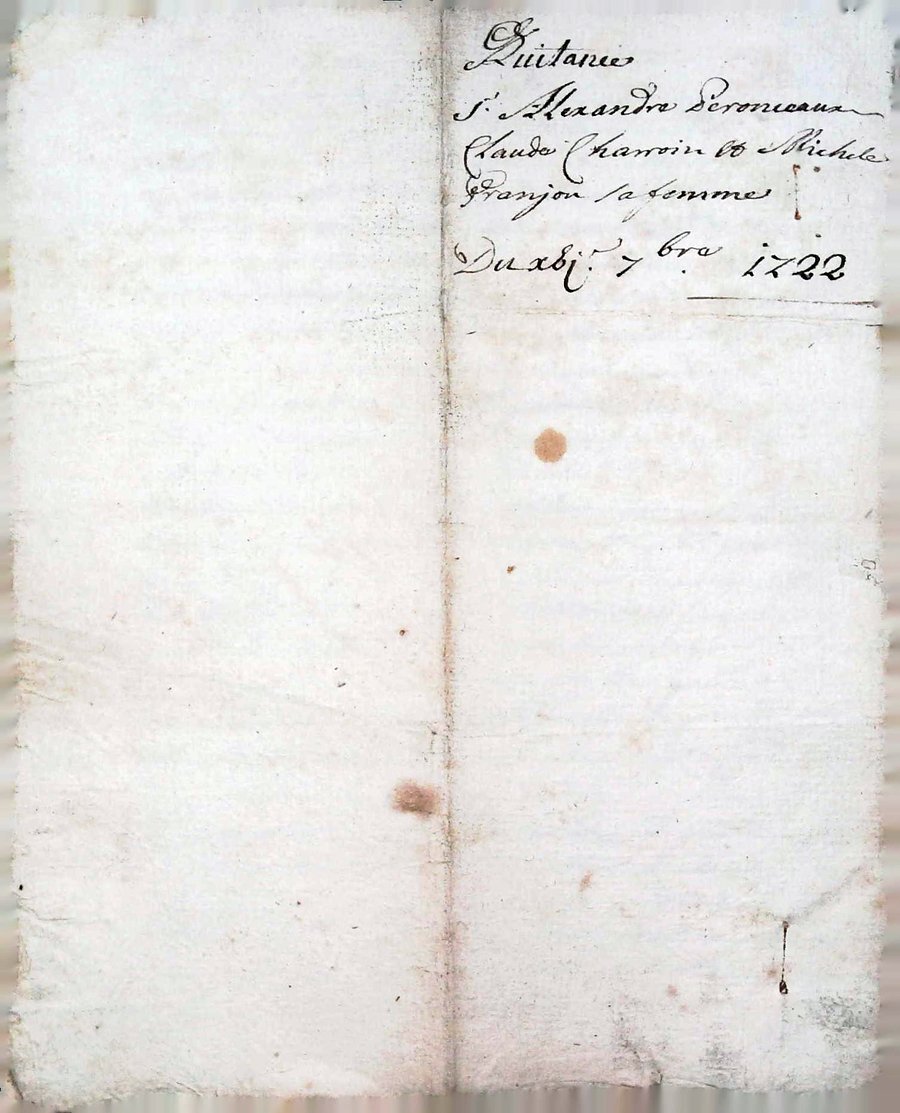 Quitance
Sr Alexandre Peronceaux
Claude Charroin et Michele
Granjon sa femme
Du xbje 7bre 1722